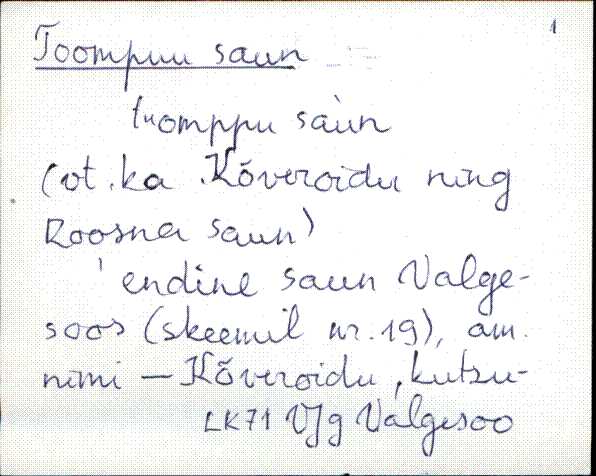 1
Toompuu saun
tuomppu sàun
(vt. ka Kõveroidu ning
Roosna saun)
' endine saun Valge-
soos (skeemil nr. 19), am.
nimi — Kõveroidu, kutsu-
LK71 VJg Valgesoo